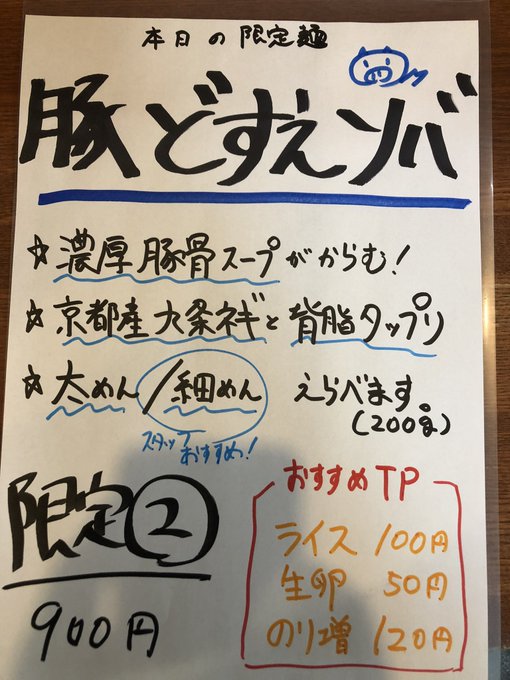 本日の限定麺
豚どすえソバ
☆濃厚豚骨スープがからむ!
☆京都産九条ネギと背脂タップリ
☆太めん/細めん えらべます。
(200g)
スタッフ
おすすめ!
限定②
900円
おすすめTP
ライス 100円
生卵 50円
のり増 120円